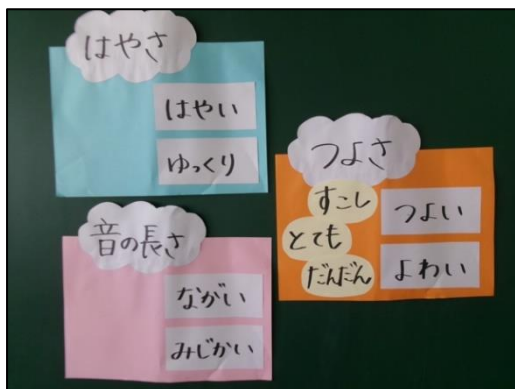 はやさ
はやい
ゆっくり
つよさ
すこし
とても
だんだん
つよい
よわい
音の長さ
ながい
みじかい